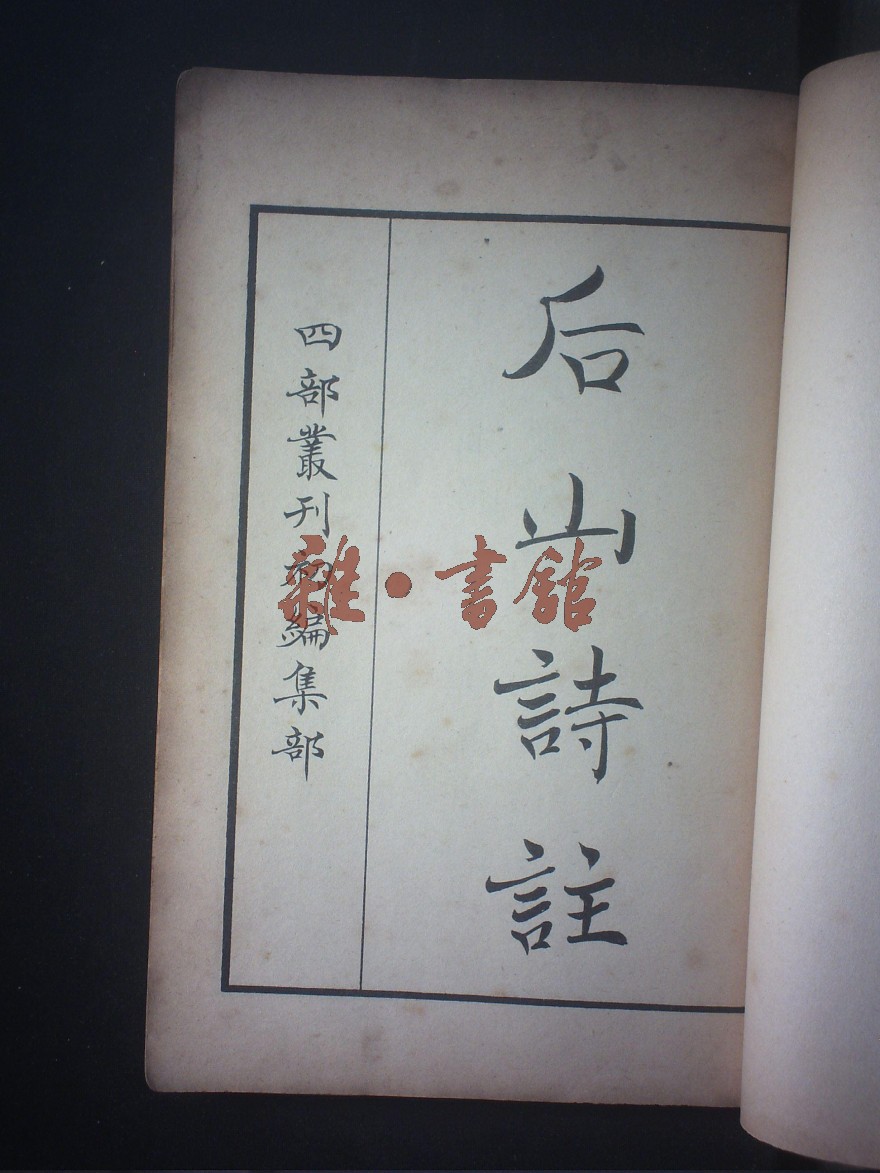 后山詩註
四部叢刊初編集部
雜·書館